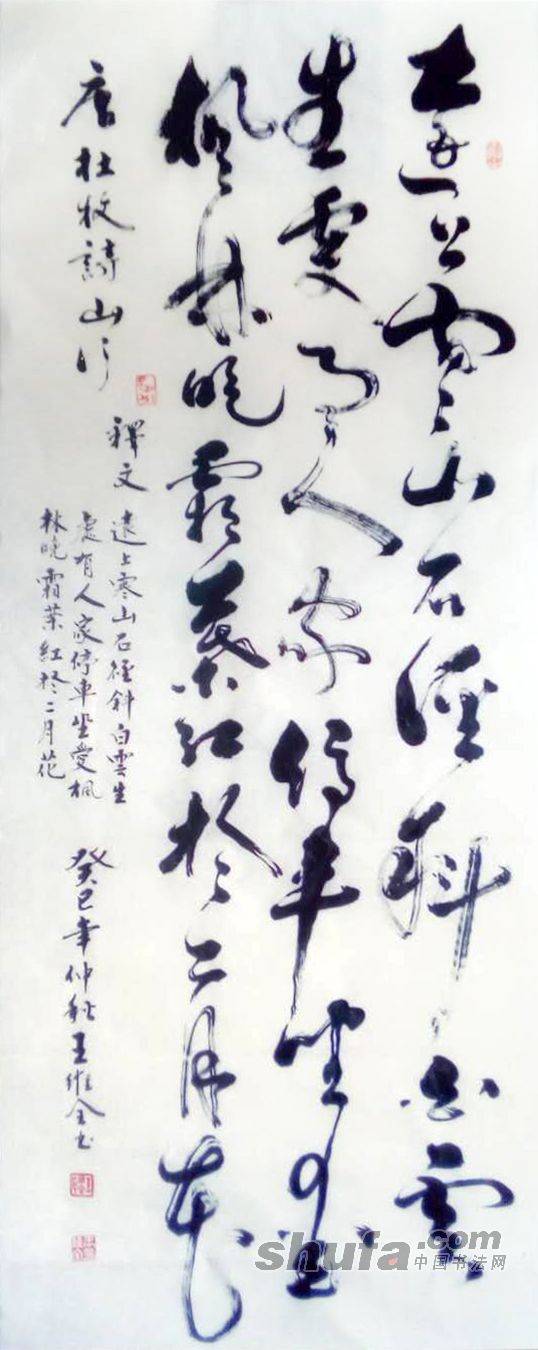 遠上寒山石徑斜白雲
生處有人家停車坐愛
楓林晚霜葉紅於二月花
唐杜牧詩山行
釋文
遠上寒山石徑斜白雲生
處有人家停車坐愛楓
林晚霜葉紅於二月花
癸巳年仲秋王維全书
shufa.com
中国书法网